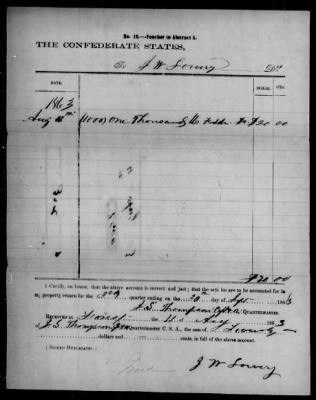 No. 12.—Voucher to Abstract A.
THE CONFEDERATE STATES,
To J W Lowry Dr.
DATE. DOLLS. CTS.
1863
Aug (1000) One Thousand lbs Fodder $20 00
$20.00
I Certify, on honor, that the above account is correct and just; that the articles are to be accounted for in
my property return for the 3rd quarter ending on the 30th day of Sept 1863
J. S. Thompson Capt & QUARTERMASTER.
RECEIVED at the Aug 1863
of J. S. Thompson Quartermaster C. S. A., the sum of Twenty
dollars and cents, in full of the above account.
(SIGNED DUPLICATES.)
J W Lowry